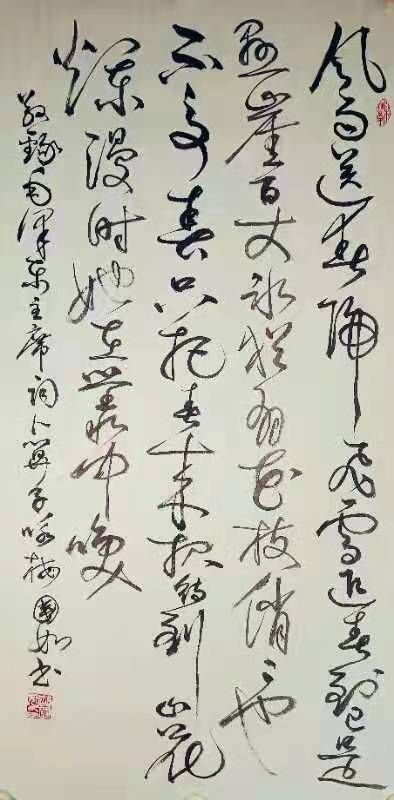 风雨送春归飞雪迎春到已是
悬崖百丈冰犹有花枝俏俏也
不争春只把春来报待到山花
烂漫时她在丛中笑
敬录毛泽东主席词卜算子咏梅 国如书